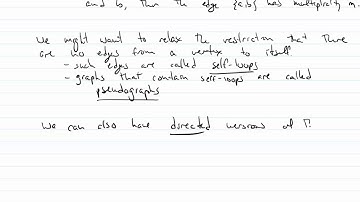 and b, then the edge {a,b} has multiplicity m.
We might want to relax the restriction that there
are no edges from a vertex to itself
- such edges are called self-loops
- graphs that contain self-loops are called
pseudographs
We can also have directed versions of